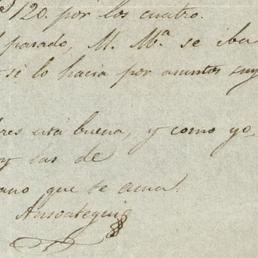 120. por los cuatro.
pasado, M. Mª se iba
si lo hacia por asuntos suy
res está buena, y como yo
y las de
ano que te ama.
Ansoategui